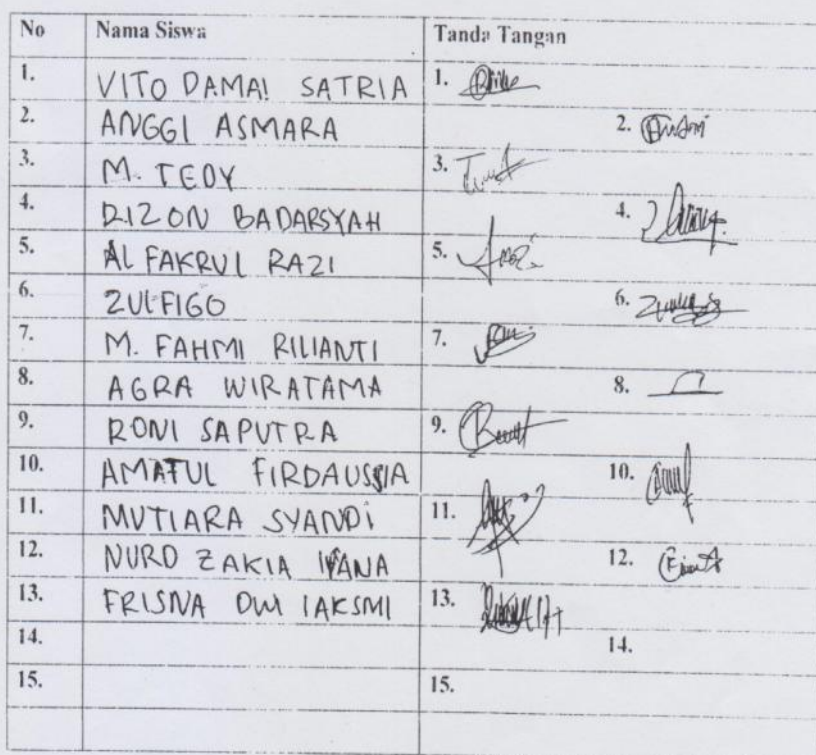 No Nama Siswa Tanda Tangan
1. VITO DAMAI SATRIA 1.
2. ANGGI ASMARA 2.
3. M. TEDY 3.
4. DIZON BADARSYAH 4.
5. AL FAKRUL RAZI 5.
6. ZULFIGO 6.
7. M. FAHMI RILIANTI 7.
8. AGRA WIRATAMA 8.
9. RONI SAPUTRA 9.
10. AMATUL FIRDAUSSIA 10.
11. MUTIARA SYANDI 11.
12. NURO ZAKIA 12.
13. FRISNA DWI LAKSMI 13.
14. 14.
15. 15.